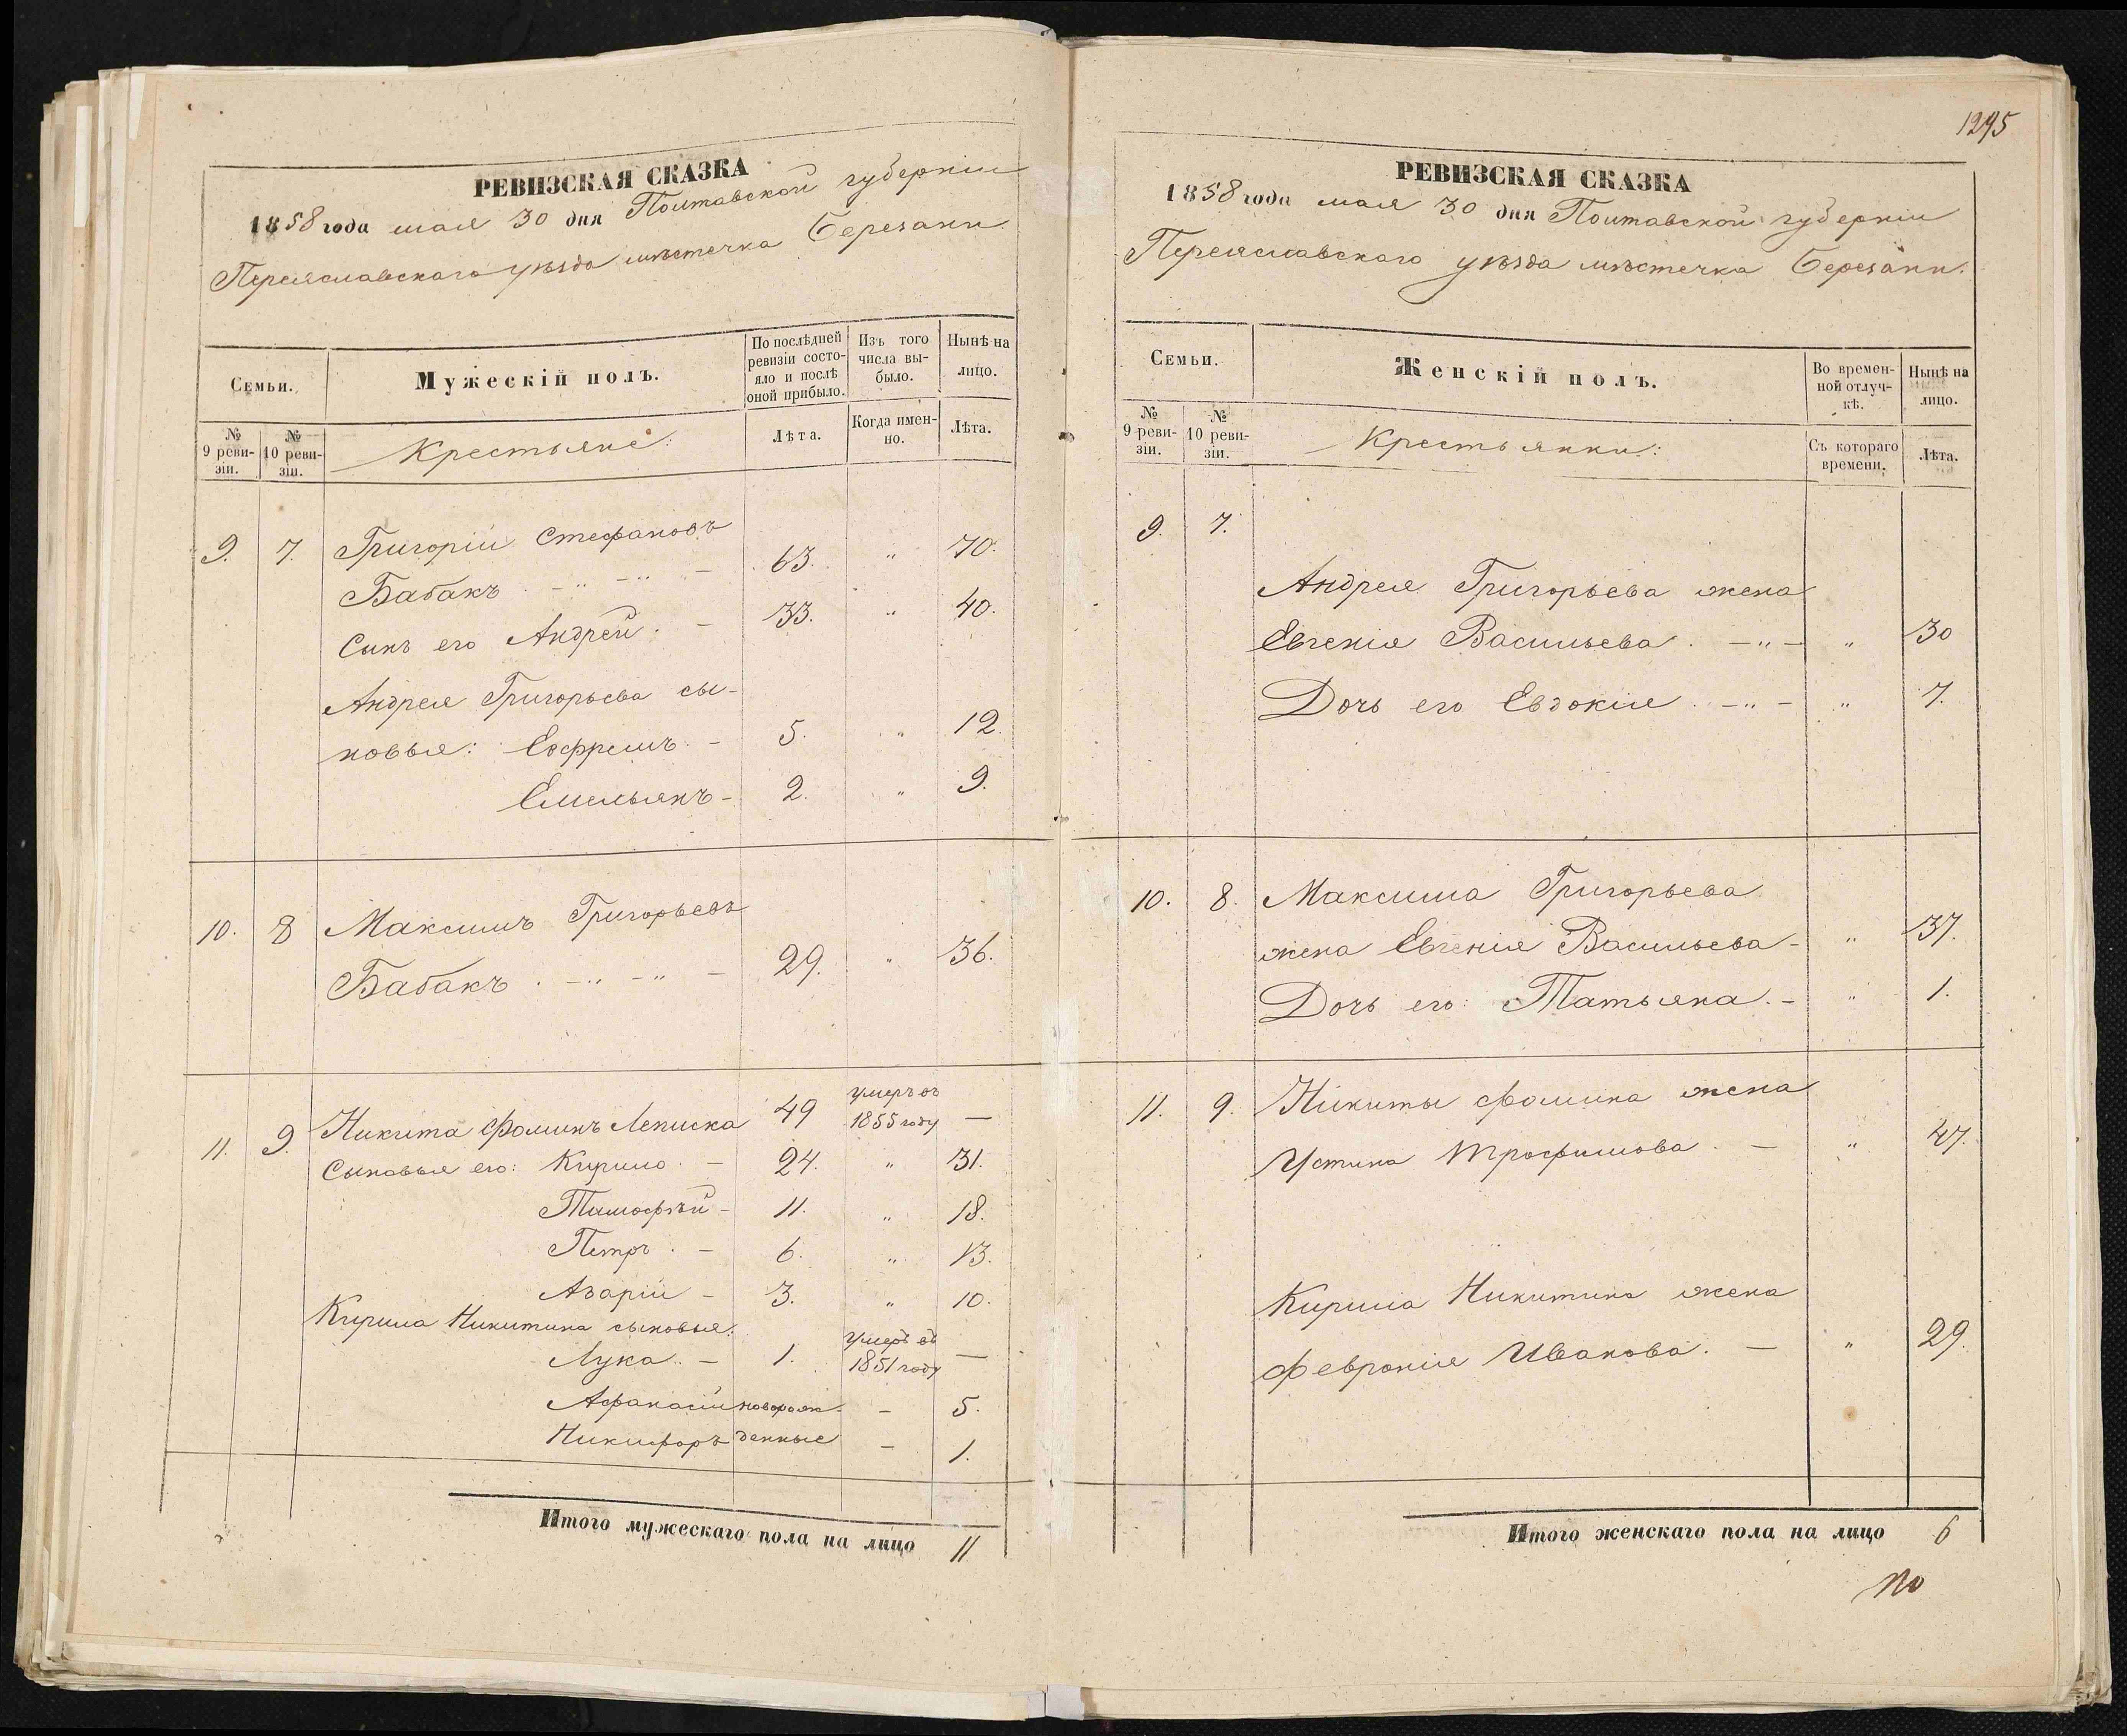 РЕВИЗСКАЯ СКАЗКА
1858 года мая 30 дня Полтавской губерніи
Переяславскаго уѣзда мѣстечка Березани.
Семьи.
Мужескій полъ.
По послѣдней ревизіи состояло и послѣ оной прибыло.
Изъ того числа выбыло.
Нынѣ на лицо.
№ 9 ревизіи.
№ 10 ревизіи.
Крестьяне:
Лѣта.
Когда именно.
Лѣта.
9. 7. Григорій Стефановъ
Бабакъ . - " - " - 63. " 70.
Сынъ его Андрей. - 33. " 40.
Андрея Григорьева сы-
новья: Ефремъ. - 5. " 12.
Емельянъ - 2. " 9.
10. 8 Максимъ Григорьевъ
Бабакъ . - " - " - 29. " 36.
11. 9. Никита Фоминъ Леписка 49 умеръ въ 1855 году —
Сыновья его: Кирило. - 24. " 31.
Тимофѣй - 11. " 18.
Петръ . - 6. " 13.
Азарій - 3. " 10.
Кирила Никитина сыновья:
Лука. - 1. Умеръ въ 1851 году —
Афанасій новорож- - 5.
Никифоръ денные - 1.
Итого мужескаго пола на лицо 11
1295
РЕВИЗСКАЯ СКАЗКА
1858 года мая 30 дня Полтавской губерніи
Переяславскаго уѣзда мѣстечка Березани.
Семьи.
Женскій полъ.
Во временной отлучкѣ.
Нынѣ на лицо.
№ 9 ревизіи.
№ 10 ревизіи.
Крестьянки:
Съ котораго времени.
Лѣта.
9. 7.
Андрея Григорьева жена
Евгенія Васильева . - " - " 30
Дочь его Евдокія . - " - " 7.
10. 8. Максима Григорьева
жена Евгенія Васильева - " 37.
Дочь его: Татьяна. - " 1.
11. 9. Никиты Фомина жена
Устина Трофимова . — " 47.
Кирила Никитина жена
Февронія Иванова. — " 29.
Итого женскаго пола на лицо 6